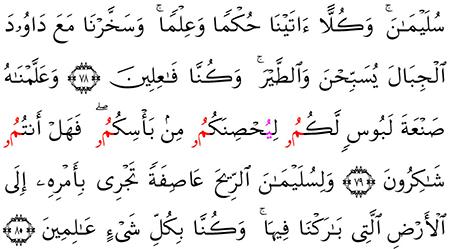 سُلَيْمَـٰنَ ۚ وَكُلًّا ءَاتَيْنَا حُكْمًا وَعِلْمًا ۚ وَسَخَّرْنَا مَعَ دَاوُۥدَ
اَلْجِبَالَ يُسَبِّحْنَ وَالطَّيْرَ ۚ وَكُنَّا فَـٰعِلِينَ ۝٧٨ وَعَلَّمْنَـٰهُ
صَنْعَةَ لَبُوسٍ لَّكُمُۥ لِيُحْصِنَكُمُۥ مِنۢ بَأْسِكُمُۥ ۖ فَهَلْ أَنتُمُۥ
شَـٰكِرُونَ ۝٧٩ وَلِسُلَيْمَـٰنَ الرِّيحَ عَاصِفَةً تَجْرِى بِأَمْرِهِۦ إِلَى
اَلْأَرْضِ الَّتِى بَـٰرَكْنَا فِيهَا ۚ وَكُنَّا بِكُلِّ شَىْءٍ عَـٰلِمِينَ ۝٨٠